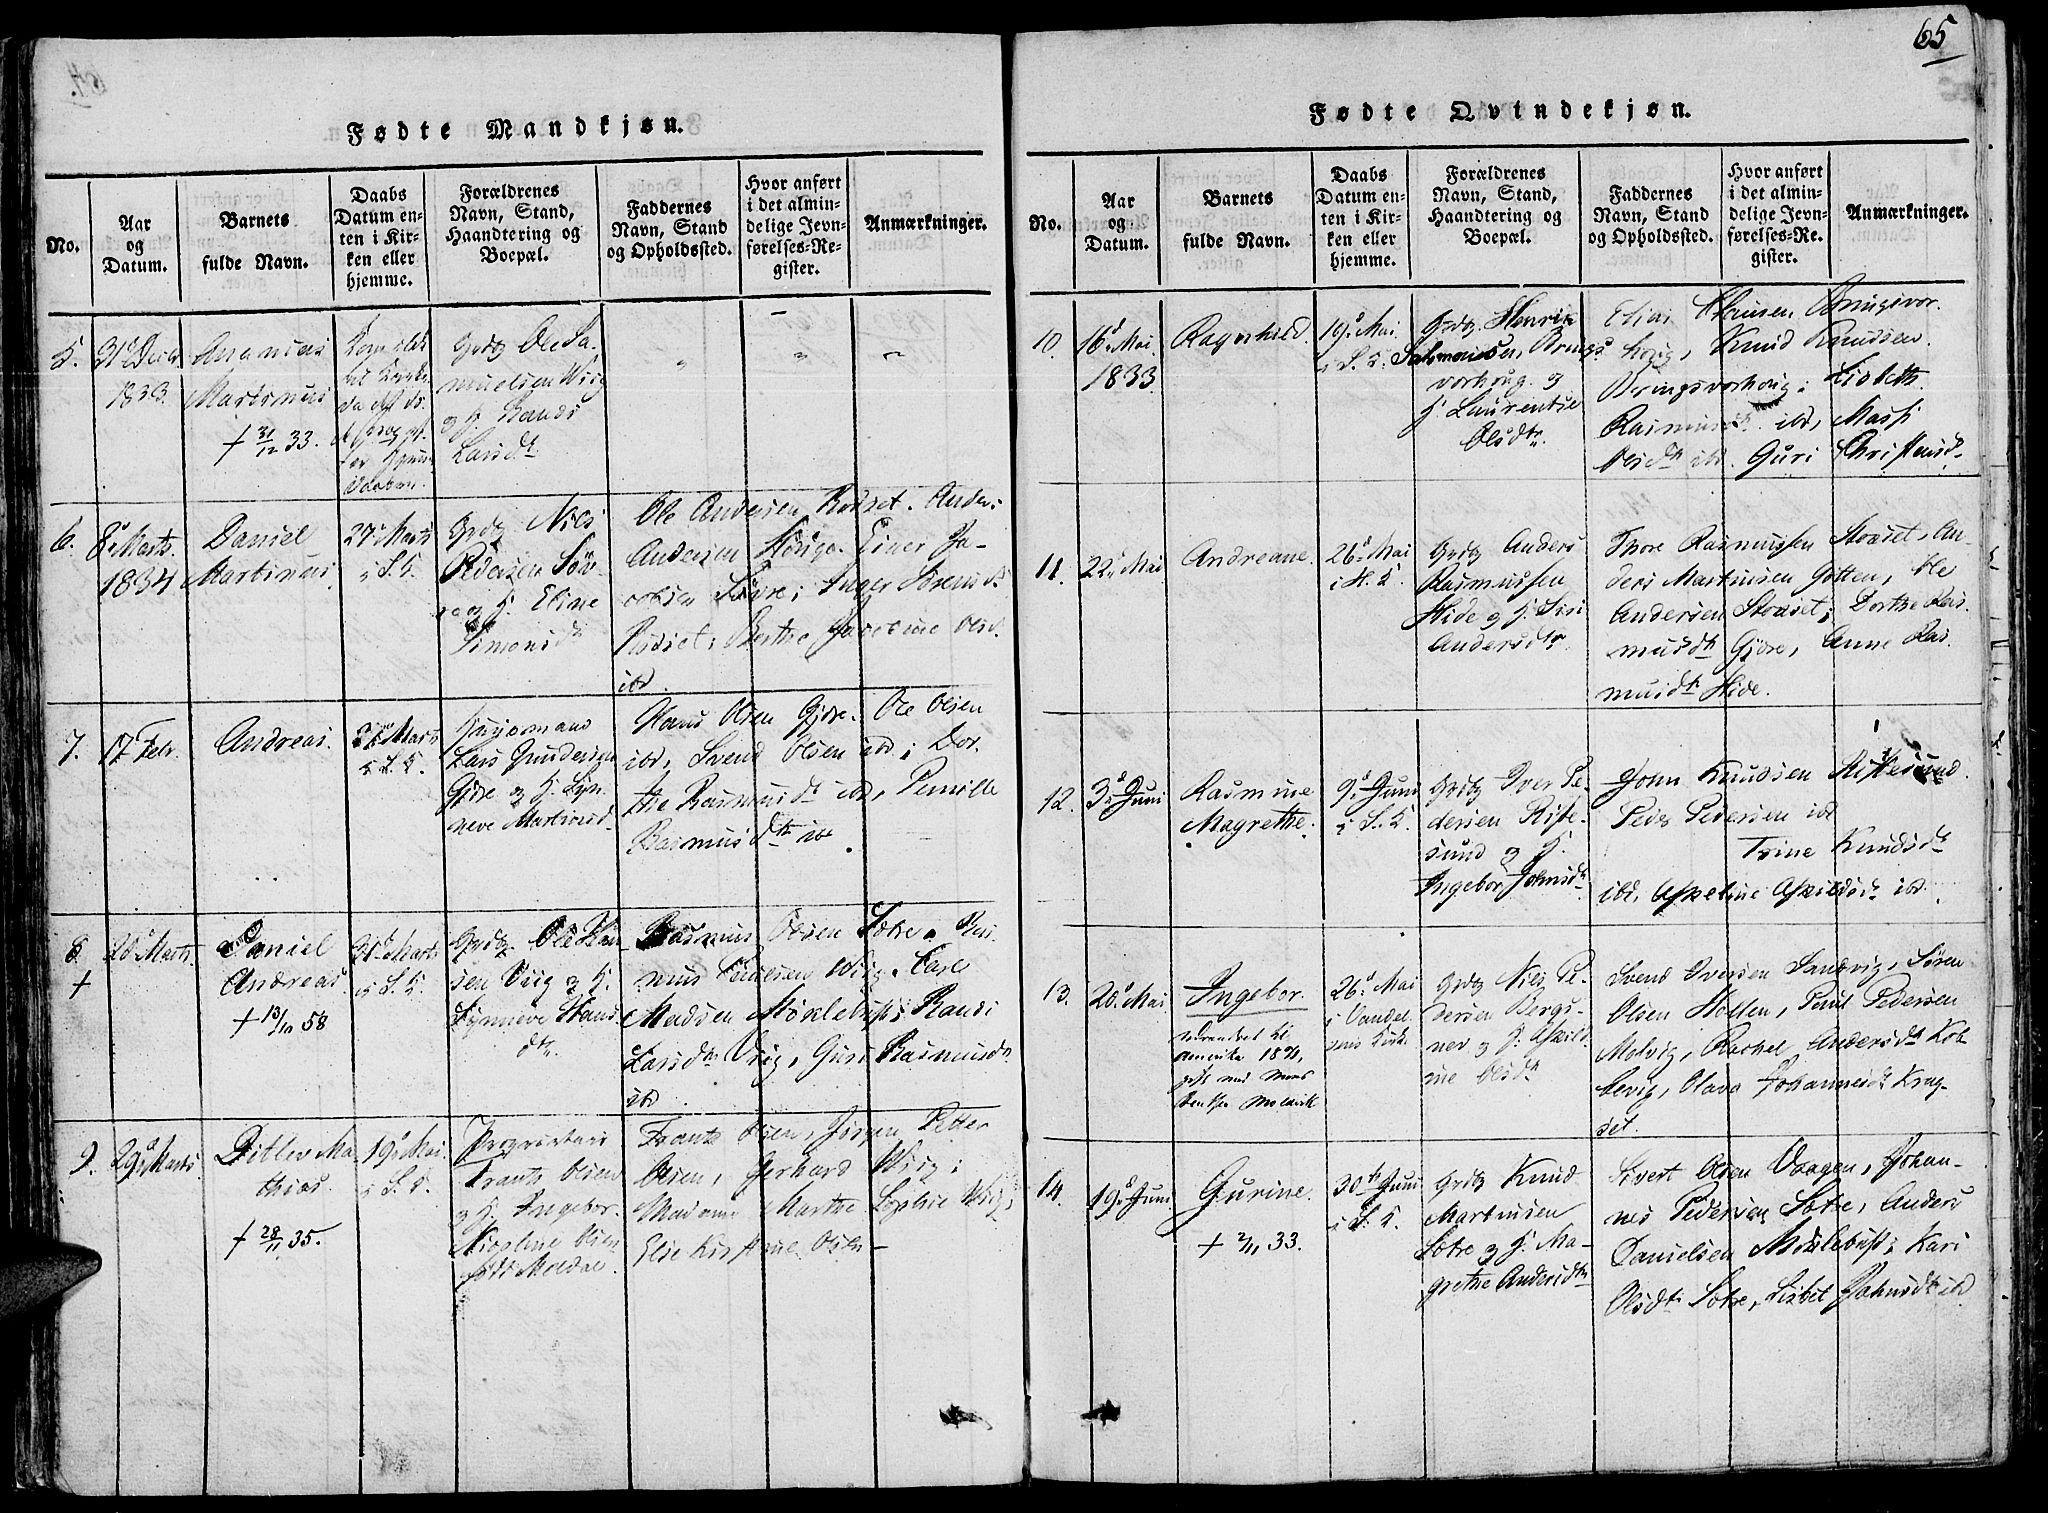 65
Fødte Mandkjøn.
No.
Aar
og
Datum.
Barnets
fulde Navn.
Daabs
Datum en-
ten i Kir-
ken eller
hjemme.
Forældrenes
Navn, Stand,
Haandtering og
Boepæl.
Faddernes
Navn, Stand
og Opholdssted.
Hvor anført
i det almin-
delige Jevn-
førelses-Re-
gister.
Anmærkninger.
5.
31 Decbr
1833.
Ananias
Martinus
+ 31/12 33.
Grdbr Ole Sa-
muelsen Wiig
og H. Randi
Larsdtr
6.
8de Marts.
1834
Daniel
Martinus
27. Marts
i S. K.
Grdbr Niels
Pedersen Søv-
re og H. Eline
Simonsdtr
Ole Andersen Rødset. Anders
Andersen Einer Ja-
cobsen Søvre; Inger Sørensdtr
Rødset; Berthe Olsd.
ibd.
7.
17 Febr.
Andreas.
Marts
i S. K.
Huusmand
Lars Gundersen
Gjøre og H. Syn-
neve Martinusd
Hans Olsen Gjøre. Ole Olsen
ibd, Svend Olsen ibd; Dor-
the Rasmusdtr ibd, Pernille
Rasmusdtr ibd.
8.
+
20de Marts.
Daniel
Andreas.
+ 13/10 58
31te Marts
i S. K.
Grdbr. Ole Han-
sen Viig og H.
Synneve Hans-
dtr.
Rasmus Olsen Sætre. Ras-
mus Wiig. Carl
Madsen Møklebust; Randi
Larsdtr Viig, Guri Rasmusdtr
ibd
9.
29de Marts
Ditlev Ma-
thias.
+ 28/11 35.
19de Mai.
i S. K.
Proprietair
Frants Olsen
og H. Ingebor
Nicoline Olsen
født Moldal.
Frants Olsen, Jørgen Petter
Olsen, Gerhard Wiig;
Madame Marthe Sophie Wiig;
Elie Kirstine Olsen
Fødte Qvindekjøn.
No.
Aar
og
Datum.
Barnets
fulde Navn.
Daabs
Datum en-
ten i Kir-
ken eller
hjemme.
Forældrenes
Navn, Stand,
Haandtering og
Boepæl.
Faddernes
Navn, Stand
og Opholdssted.
Hvor anført
i det almin-
delige Jevn-
førelses-Re-
gister.
Anmærkninger.
10
16de Mai.
1833
Ragnhild.
19de Mai.
i S. K.
Grdbr. Henrik
Salomonsen Brings-
vorhoug og
H Laurentse
Olsdtr.
Elias Hansen Bringsvor-
houg, Knud Knudsen
Bringsvorhoug; Lisbeth
Rasmusd. ibd, Marss
Olsdtr ibd. Guri Christensd.
11.
22de Mai
Andreane.
26de Mai
i H. K
Grdbr Anders
Rasmussen
Hide og H. Siri
Andersdtr
Thore Rasmussen Stoxset, An-
ders Martinsen Gotten, Ole
Andersen Stoxset; Dorthe Ras-
musdtr Gjøre, Anne Ras-
musdtr Hide.
12.
3de Juni
Rasmine
Magrethe.
9de Juni
i S. K.
Grdbr Iver Pe-
dersen Riste-
sund og H.
Ingebor Johnsdtr
John Knudsen Ristesund.
Peder Pedersen ibd
Trine Knudsdtr
ibd,
13.
20de Mai
Ingebor.
Udvandret til
Amerika
gift med Mons
26de Mai
i Vandel-
vens Kirke
Grdbr Niels Pe-
dersen Bergs-
nev og H:
Olsdtr
Svend Iversen Sandvig, Søren
Olsen Hollen, Poul Pedersen
Molvig, Rachel Andersdtr Kob-
bevig, Olava Johannesdtr Krag-
set.
14.
19de Juni
Gurine.
+ 2/11 33.
30te Juni
i S. K.
Grdbr Knud
Martinusen
Sætre og H. Ma-
grethe Andersdtr
Sivert Olsen Vaagen, Johan-
nes Pedersen Sætre, Anders
Danielsen Møklebust; Kari
Olsdtr Sætre, Lisbet Johnsdtr ibd